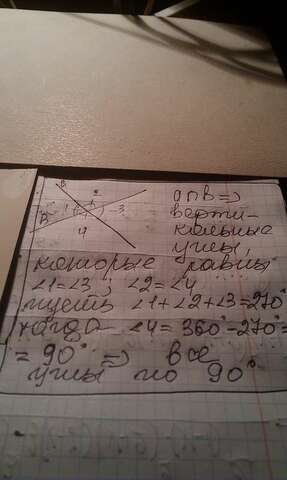 a∩b ⇒
верти-
кальные
углы,
которые равны
∠1=∠3; ∠2=∠4
пусть ∠1+∠2+∠3=270°
тогда ∠4=360°-270°=
= 90° ⇒ все
углы по 90°